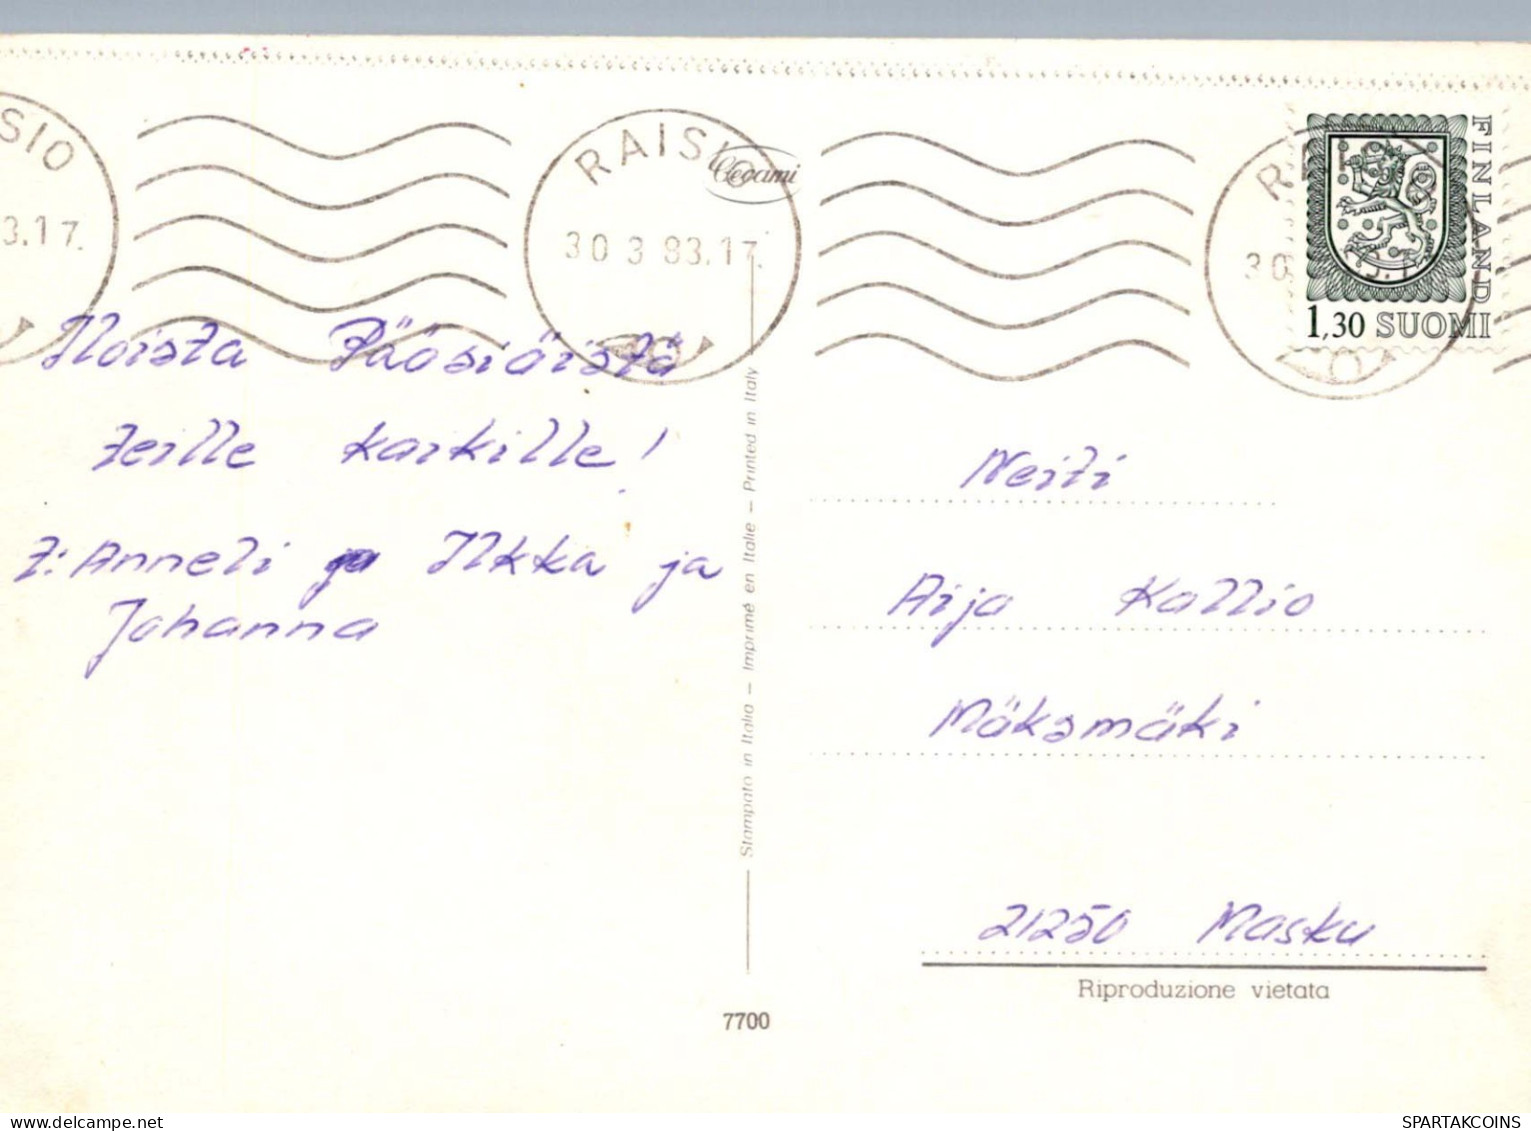 SIO
3.17.
RAISIO
30 3 83.17.
Cecami
30
FINLAND
1,30 SUOMI
Iloista Pääsiäistä
teille kaikille!
t: Anneli ja Ilkka ja
Johanna
Stampato in Italia – Imprimé en Italie – Printed in Italy
Neiti
Aija Kallio
Mäksmäki
21250 Masku
Riproduzione vietata
7700
www.delcampe.net
SPARTAKCOINS